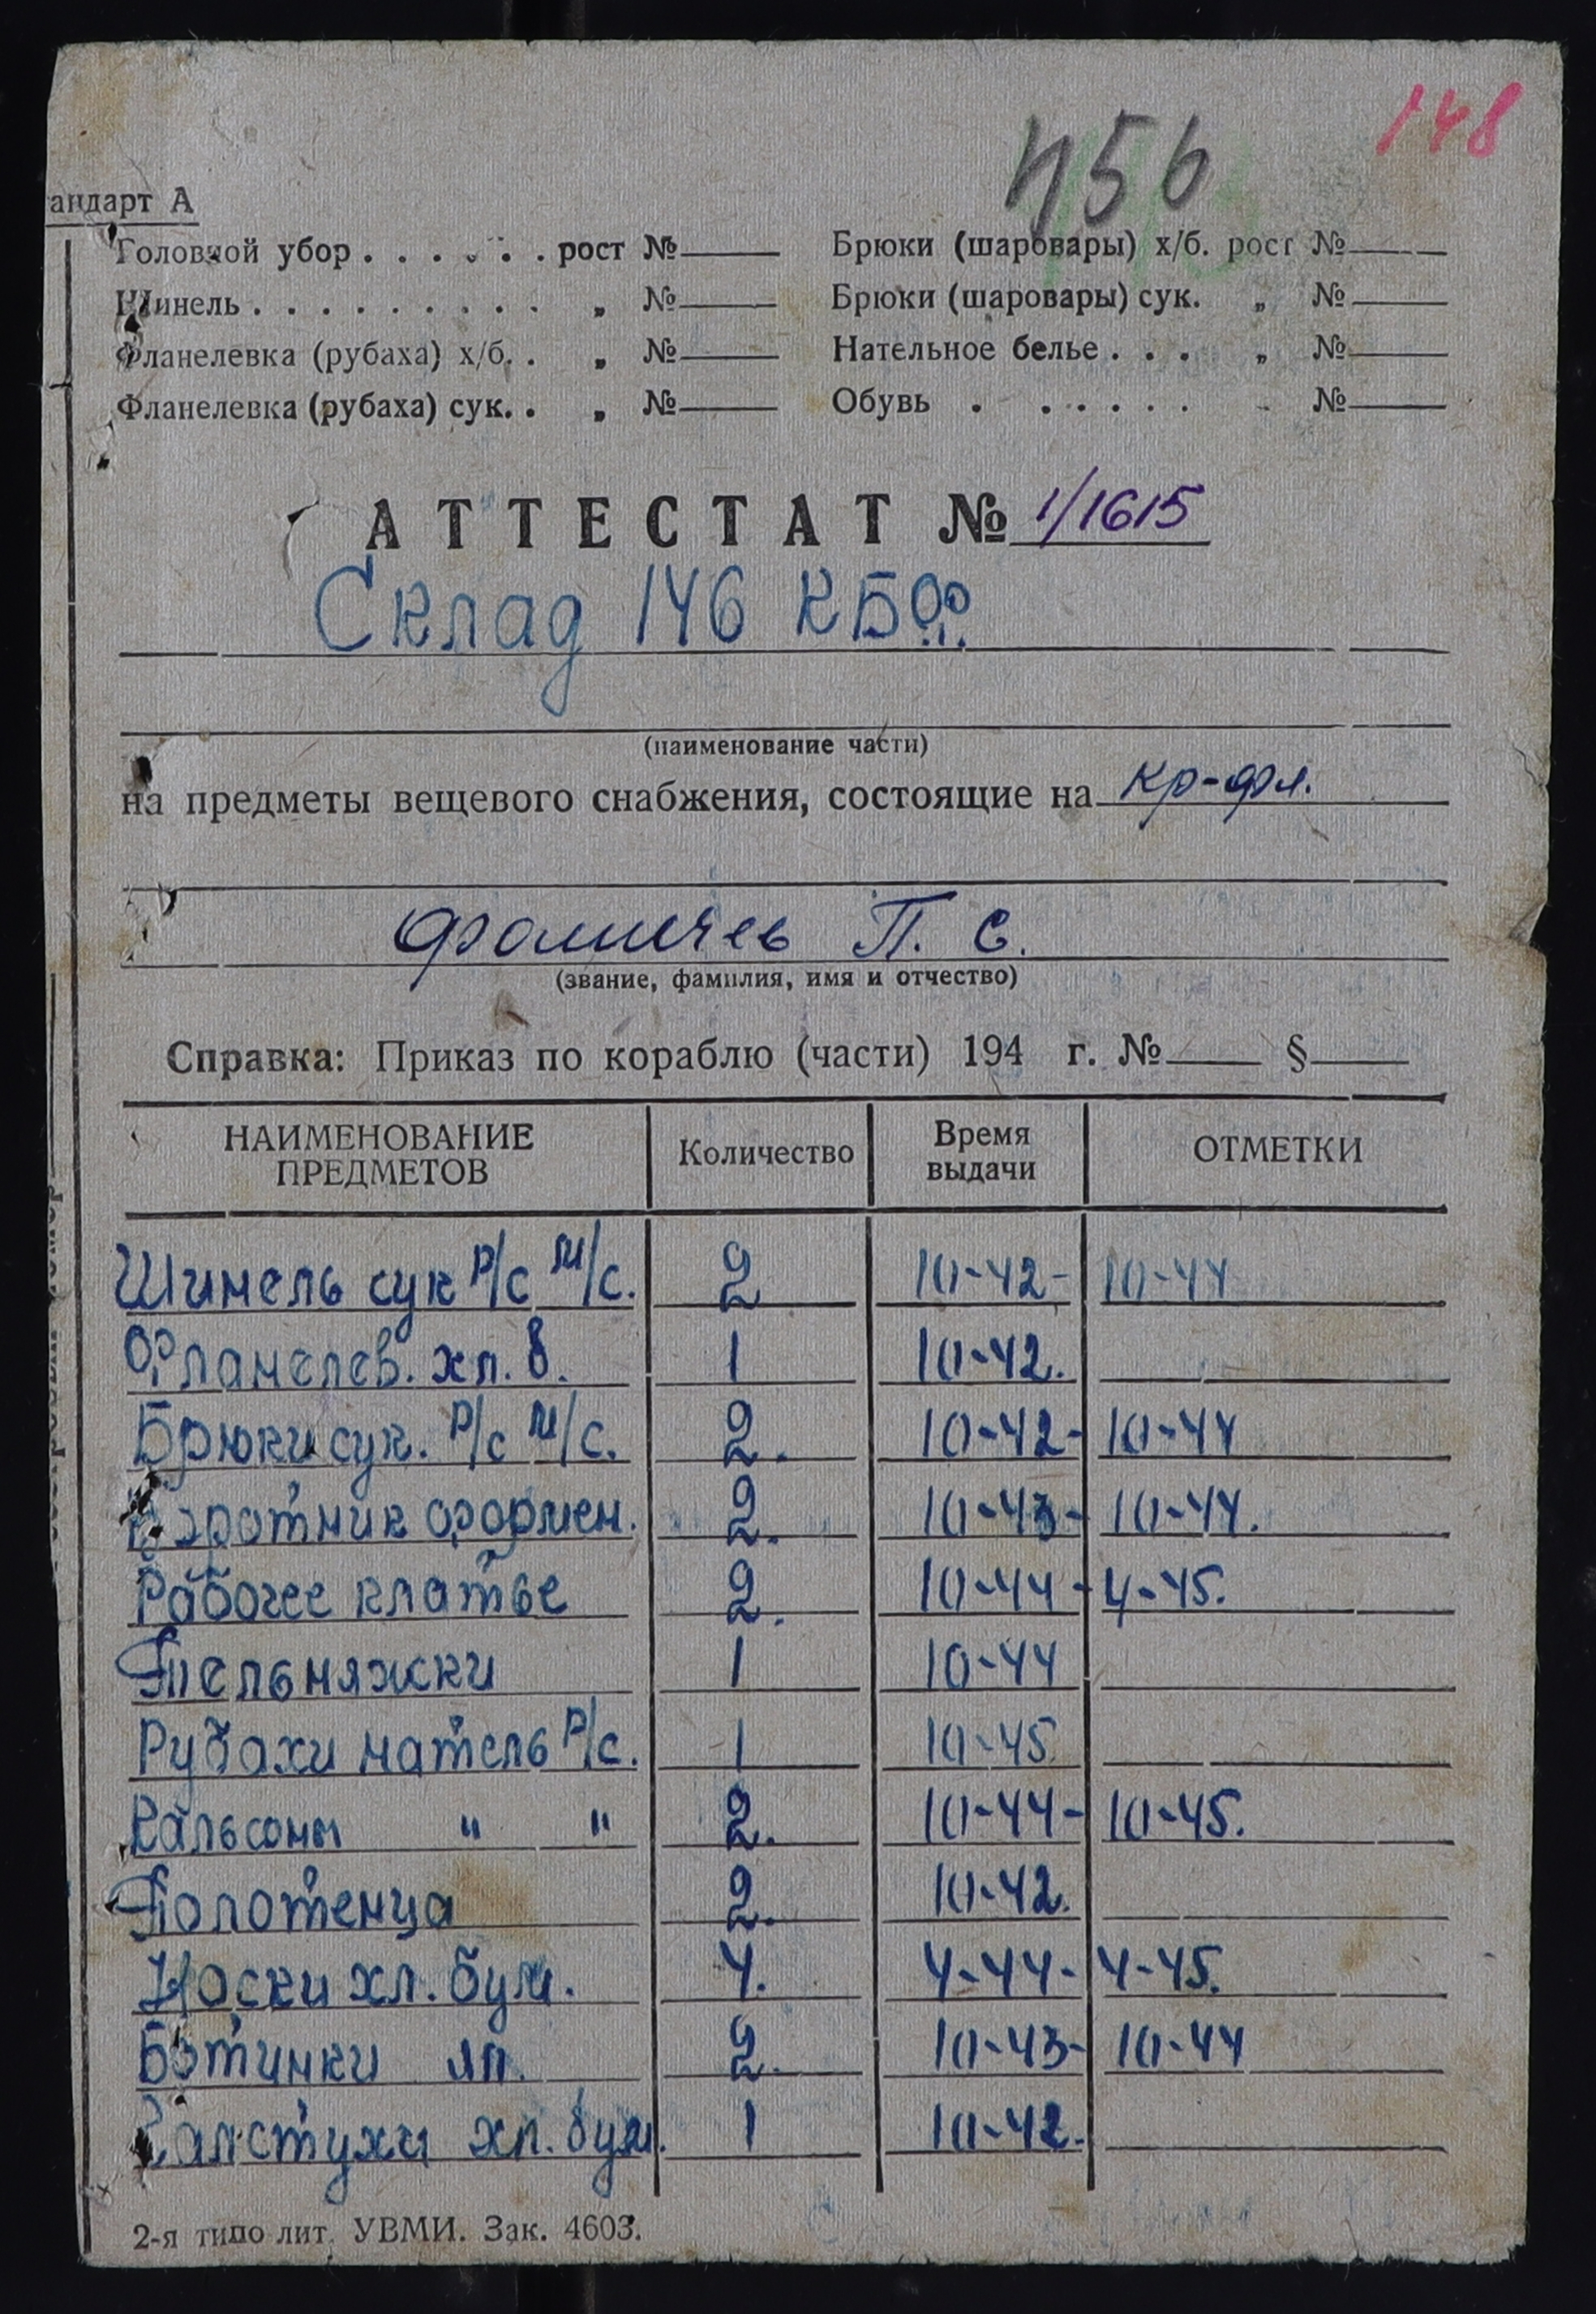 148
456
андарт А
Головной убор . . . . . . рост № Брюки (шаровары) х/б. рост №
Шинель . . . . . . . . . „ № Брюки (шаровары) сук. „ №
Фланелевка (рубаха) х/б. . „ № Нательное белье . . . „ №
Фланелевка (рубаха) сук. . „ № Обувь . . . . . . №
АТТЕСТАТ № 1/1615
Склад 146 КБФ.
(наименование части)
на предметы вещевого снабжения, состоящие на кр-фл.
Фомичев П. С.
(звание, фамилия, имя и отчество)
Справка: Приказ по кораблю (части) 194 г. № §
НАИМЕНОВАНИЕ ПРЕДМЕТОВ Количество Время выдачи ОТМЕТКИ
Шинель сук р/с м/с. 2 10-42- 10-44
Фланелев. хл. б. 1 10-42.
Брюки сук. р/с м/с. 2. 10-42- 10-44
форმен. 2. 10-43- 10-44.
Рабочее платье 2. 10-44- 4-45.
Тельняжки 1 10-44
Рубахи натель р/с. 1 10-45
Кальсоны " " 2. 10-44- 10-45.
Полотенца 2. 10-42.
Носки хл. бум. 4. 4-44- 4-45.
Ботинки яп. 2. 10-43- 10-44
Галстухи хл. бум. 1 10-42.
2-я типо лит. УВМИ. Зак. 4603.